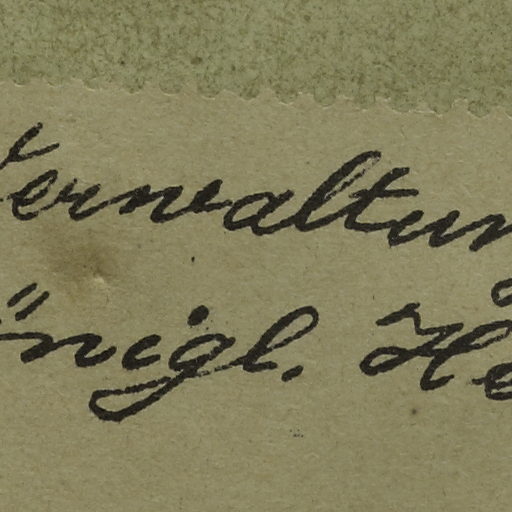 Verwaltung
önigl. He